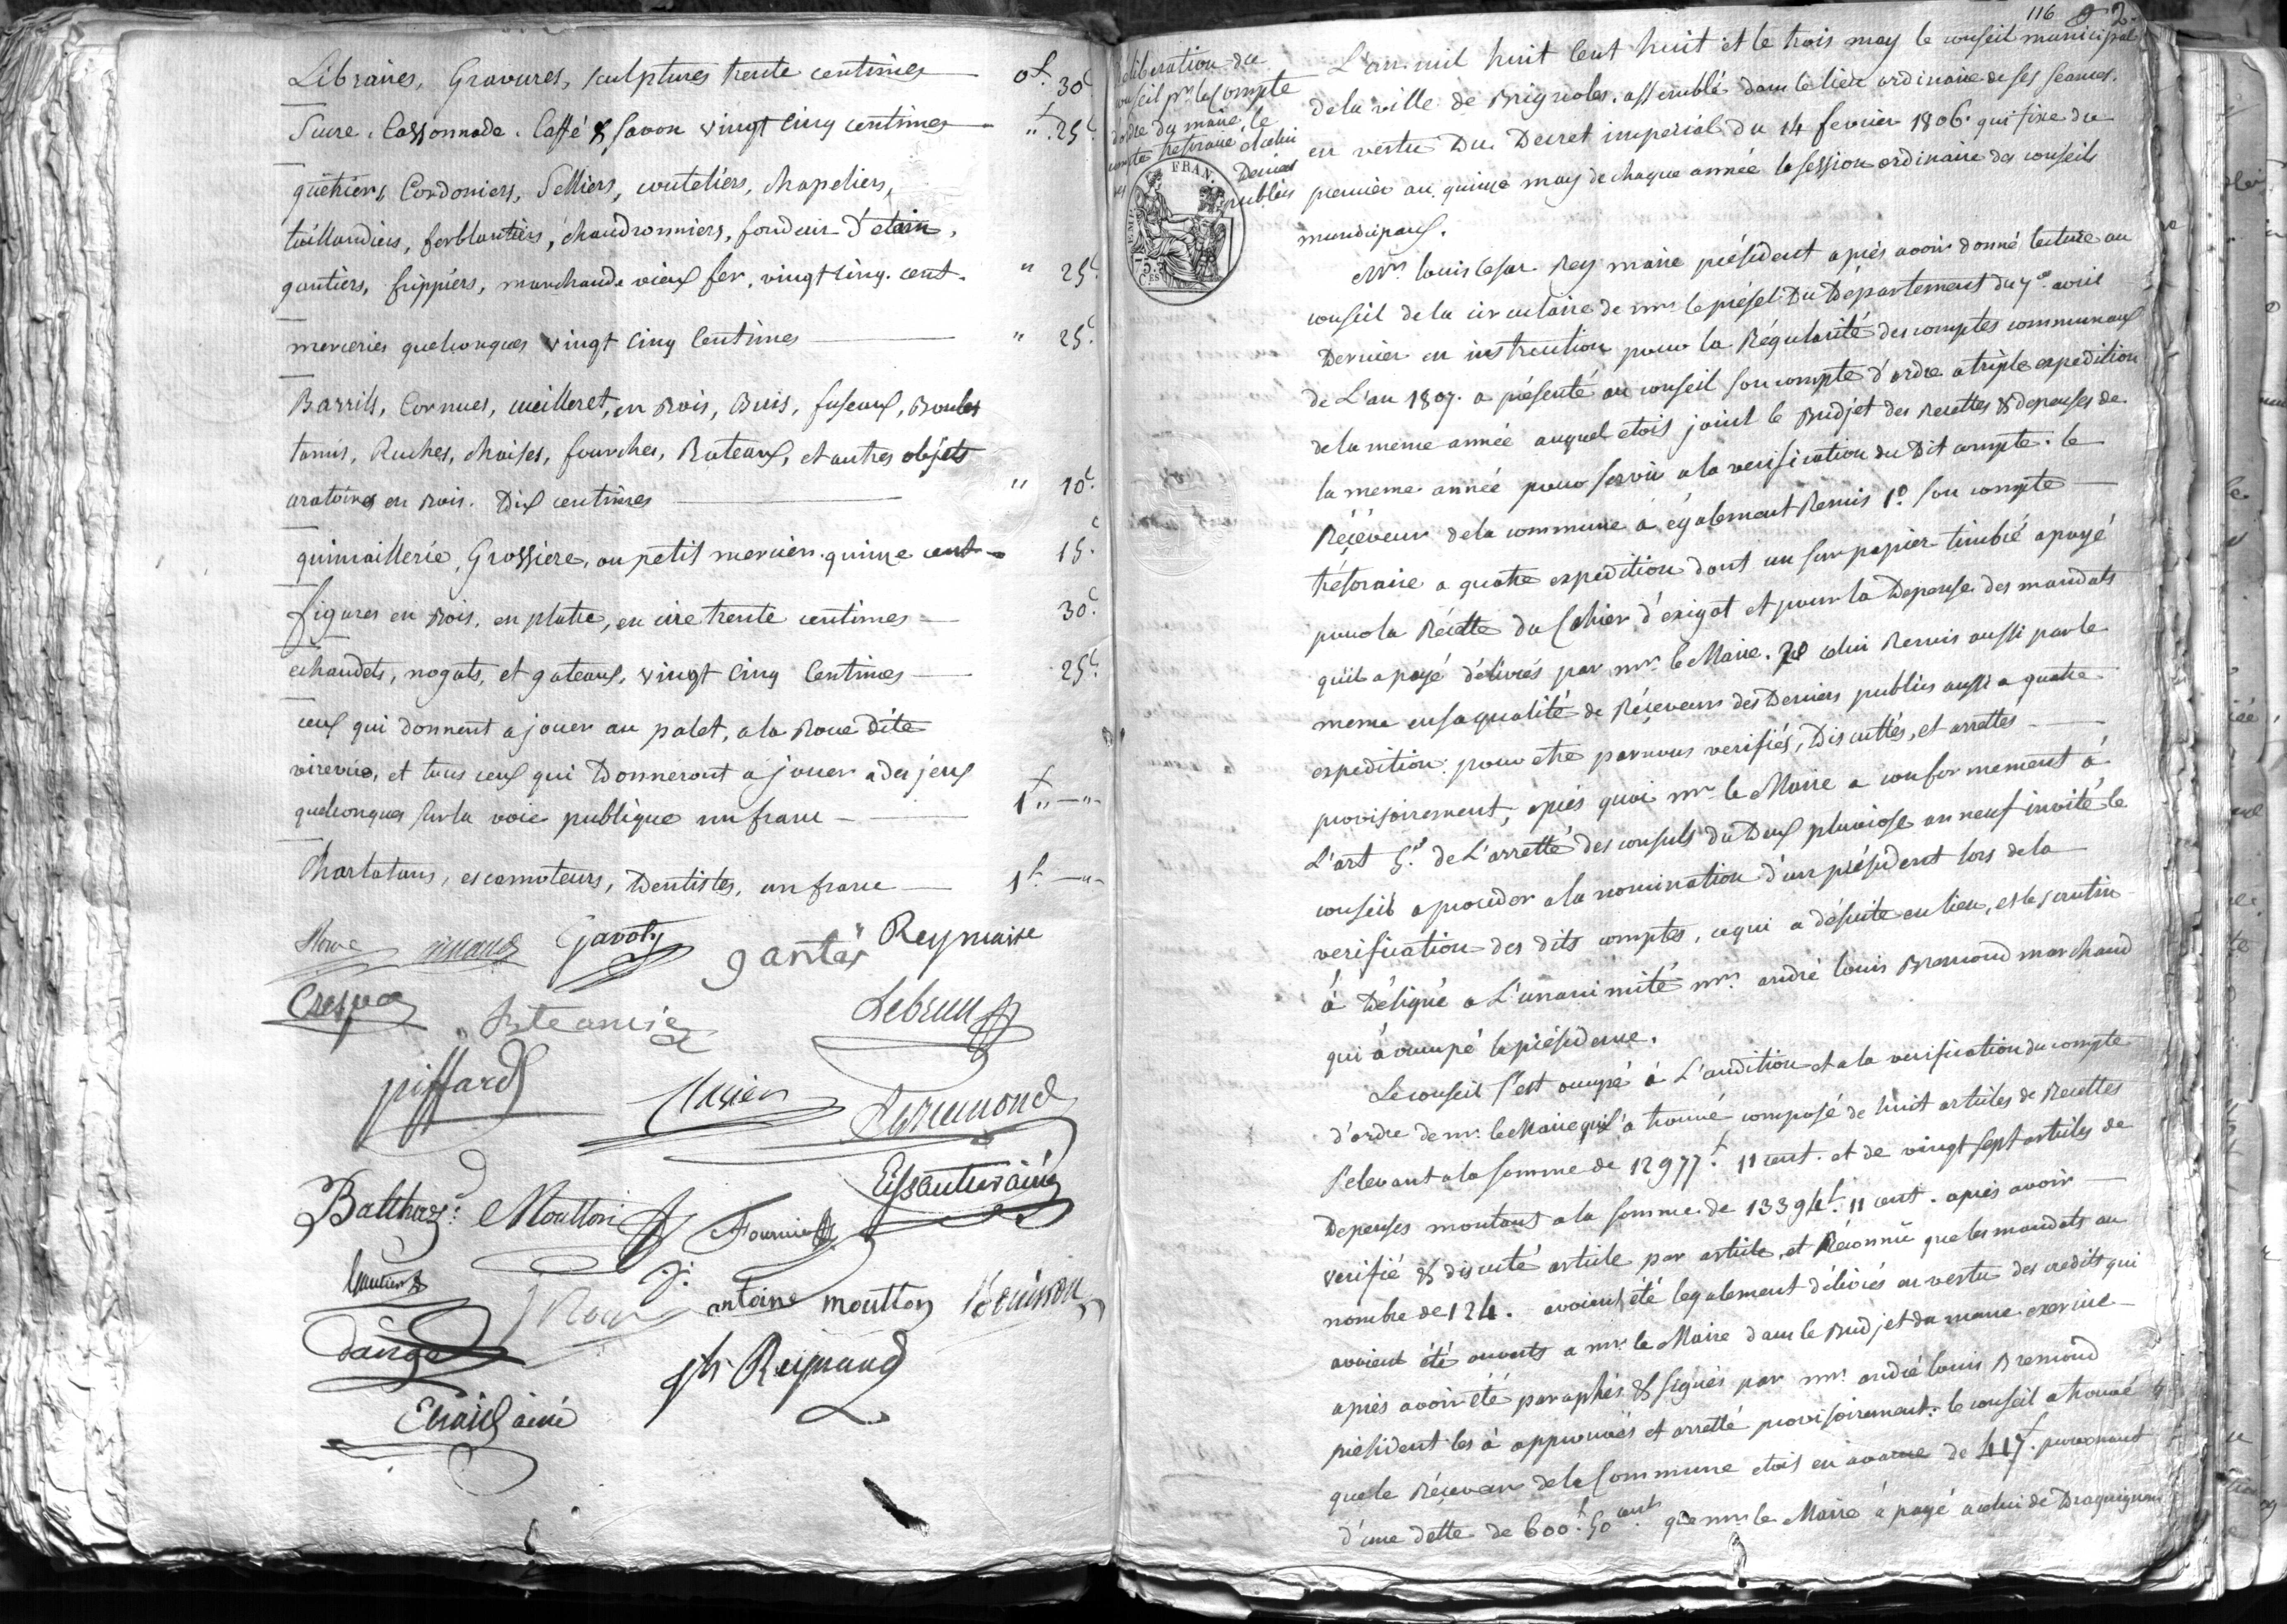 Libraires, Gravures, sculptures trente centimes — 0f. 30c
Sucre, Cassonnade, Caffé & savon vingt cinq centimes — ". 25c
guêtriers, Cordoniers, Selliers, couteliers, chapeliers,
taillandiers, ferblantiers, chaudronniers, fondeur d'etain,
gantiers, frippiers, marchands vieux fer, vingt cinq cent. " 25c.
merceries quelconques vingt cinq Centimes — " 25c.
Barrils, Cornues, cueilleret, en Bois, Buis, fuseaux, Boules
tamis, Ruches, chaises, fourches, Rateaux, et autres objets
aratoires en Bois. Dix centimes — " 10c.
quincaillerie, Grossiere, ou petit mercier quinze cent — 15c.
figures en Bois, en platre, en cire trente centimes — 30c.
echaudets, nogats, et gateaux, vingt cinq Centimes — 25c.
ceux qui donnent a jouer au palet, a la Roue dite
virevire, et tous ceux qui Donneront a jouer a des jeux
quelconques sur la voie publique un franc — 1f " — "
Charlatans, escamoteurs, Dentistes, un franc — 1f. — "
Gavoty gantés Rey maire
Crespo Lebrun
piffard Bremond
Balthazr. Moutton Fournier Eissautier ainé
Gautier J. antoine moutton
Danger jh Reynaud
ainé
116 2.
déliberation du
conseil pr. le Compte
d'ordre du maire, le
compte tresoraire et celui
des Deniers
publics
FRAN.
EMP.
75
C.ES
L'an mil huit Cent huit et le trois may le conseil municipal
de la ville de Brignoles, assemblé dans le lieu ordinaire de ses seances,
en vertu Du Decret imperial du 14 fevrier 1806. qui fixe du
premier au quinze may de chaque année la session ordinaire des conseils
municipaux.
Mr. louis Cesar Rey maire président apiés avoir donné lecture au
conseil de la circulaire de mr. le préfet Du Département du 7e. avril
Dernier en instruction pour la Régularité des comptes communaux
de L'an 1807. a présenté au conseil son compte d'ordre a triple expedition
de la meme année auquel etois joint le Budjet des Recettes & depenses de
la meme année pour servir a la verification du Dit compte. le
Réceveur de la commune a également Remis 1o. son compte —
trésoraire a quatre expedition dont un sur papier timbré a payé
pour la Récette du Cahier d'exigat et pour la Depense des mandats
qu'il a payé délivrés par mr. le Maire. 2o celui Remis aussi par le
meme en sa qualité de Réceveurs des Deniers publics aussi a quatre
expedition pour etre par nous verifiés, Discuttés, et arrettés —
provisoirement, apiés quoi mr. le Maire a conformement á
L'art 5.e de L'arretté des consuls du Deux pluviose an neuf invité le
conseil a proceder a la nomination d'un président lors de la
verification des dits comptes, ce qui a désuite eu lieu, et le scrutin
á Désigné a L'unanimité mr. andré louis Bremond marchand
qui á occupé la présidence.
Le conseil s'est occupé á L'audition et a la verification du compte
d'ordre de mr. le Maire qu'il á trouvé composé de huit articles de Recettes
s'elevant a la somme de 12977f. 11 cent. et de vingt sept articles de
Depenses montant a la somme de 13394f. 11 cent. apiés avoir —
verifié & discuté article par article, et Réconnû que les mandats au
nombre de 124. avoient été legalement délivrés en vertu des credits qui
avoient été ouverts a mr. le Maire dans le Budjet du meme exercice —
apiés avoir été paraphés & signés par mr. andré louis Bremond
président les á approuvés et arretté provisoirement: le conseil a trouvé
que le Réceveur de la Commune etois en avance de 417f. provenant
d'une dette de 600f. 50 cent. que mr. le Maire á payé a celui de Draguignan